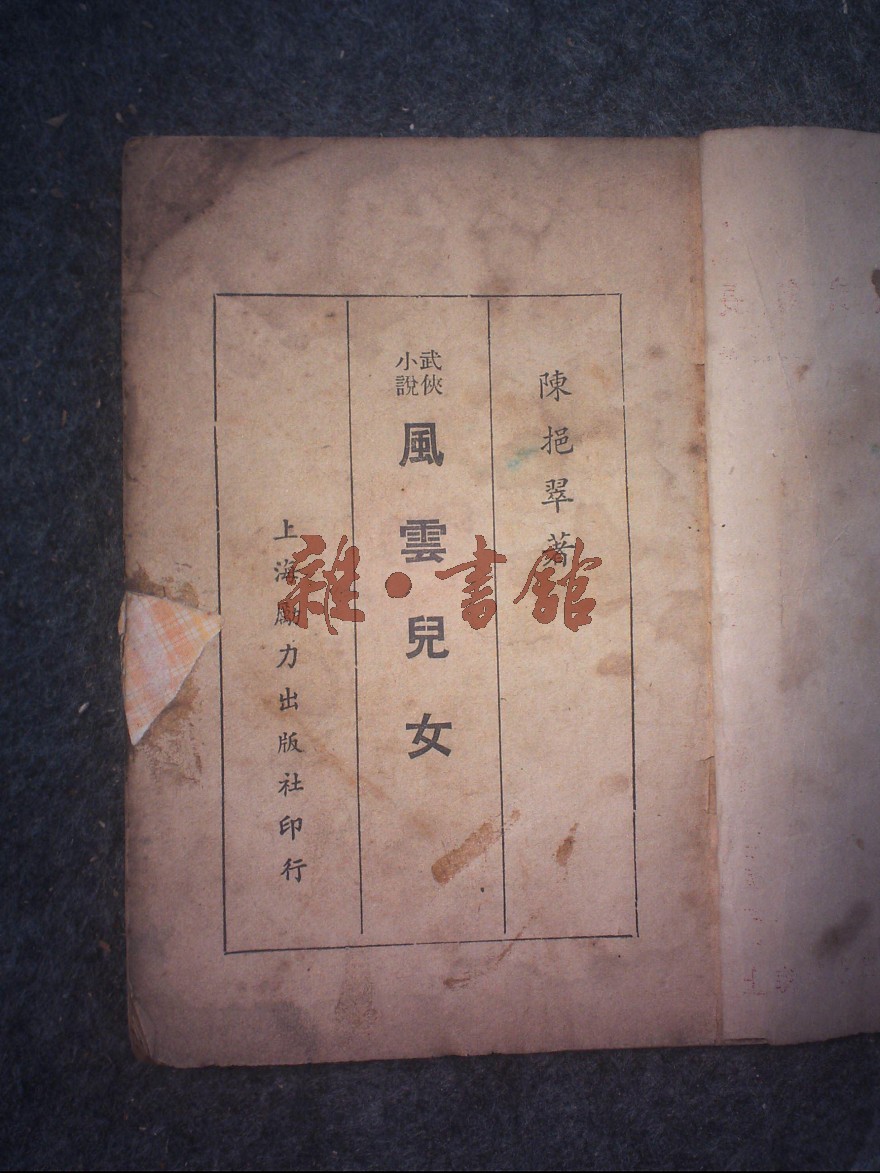 陳挹翠著
武俠
小說
風雲兒女
上海勵力出版社印行
雜·書館